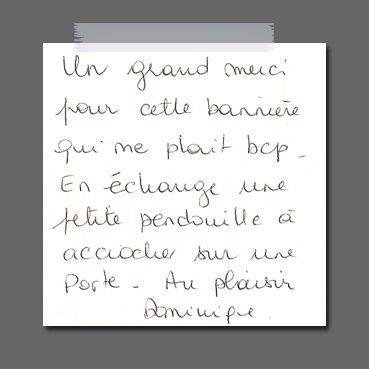 Un grand merci
pour cette bannière
qui me plait bcp -
En échange une
petite pendouille à
accrocher sur une
Porte - Au plaisir
Dominique.